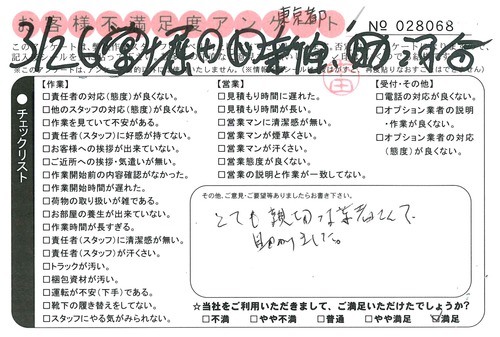 お客様不満足度アンケート
東京都
No 028068
チェックリスト
【作業】
□責任者の対応(態度)が良くない。
□他のスタッフの対応(態度)が良くない。
□作業を見ていて不安がある。
□責任者(スタッフ)に好感が持てない。
□お客様への挨拶が出来ていない。
□ご近所への挨拶・気遣いが無い。
□作業開始前の内容確認がなかった。
□作業開始時間が遅れた。
□荷物の取り扱いが雑である。
□お部屋の養生が出来ていない。
□作業時間が長すぎる。
□責任者(スタッフ)に清潔感が無い。
□責任者(スタッフ)が汗くさい。
□トラックが汚い。
□梱包資材が汚い。
□運転が不安(下手)である。
□靴下の履き替えをしてない。
□スタッフにやる気がみられない。
【営業】
□見積もり時間に遅れた。
□見積もり時間が長い。
□営業マンに清潔感が無い。
□営業マンが煙草くさい。
□営業マンが汗くさい。
□営業態度が良くない。
□営業の説明と作業が一致してない。
【受付・その他】
□電話の対応が良くない。
□オプション業者の説明
・作業が良くない。
□オプション業者の対応
(態度)が良くない。
その他、ご意見・ご要望等ありましたらお書き下さい。
とても親切な業者さんで
助かりました。
☆当社をご利用いただきまして、ご満足いただけたでしょうか?
□不満 □やや不満 □普通 □やや満足 □満足